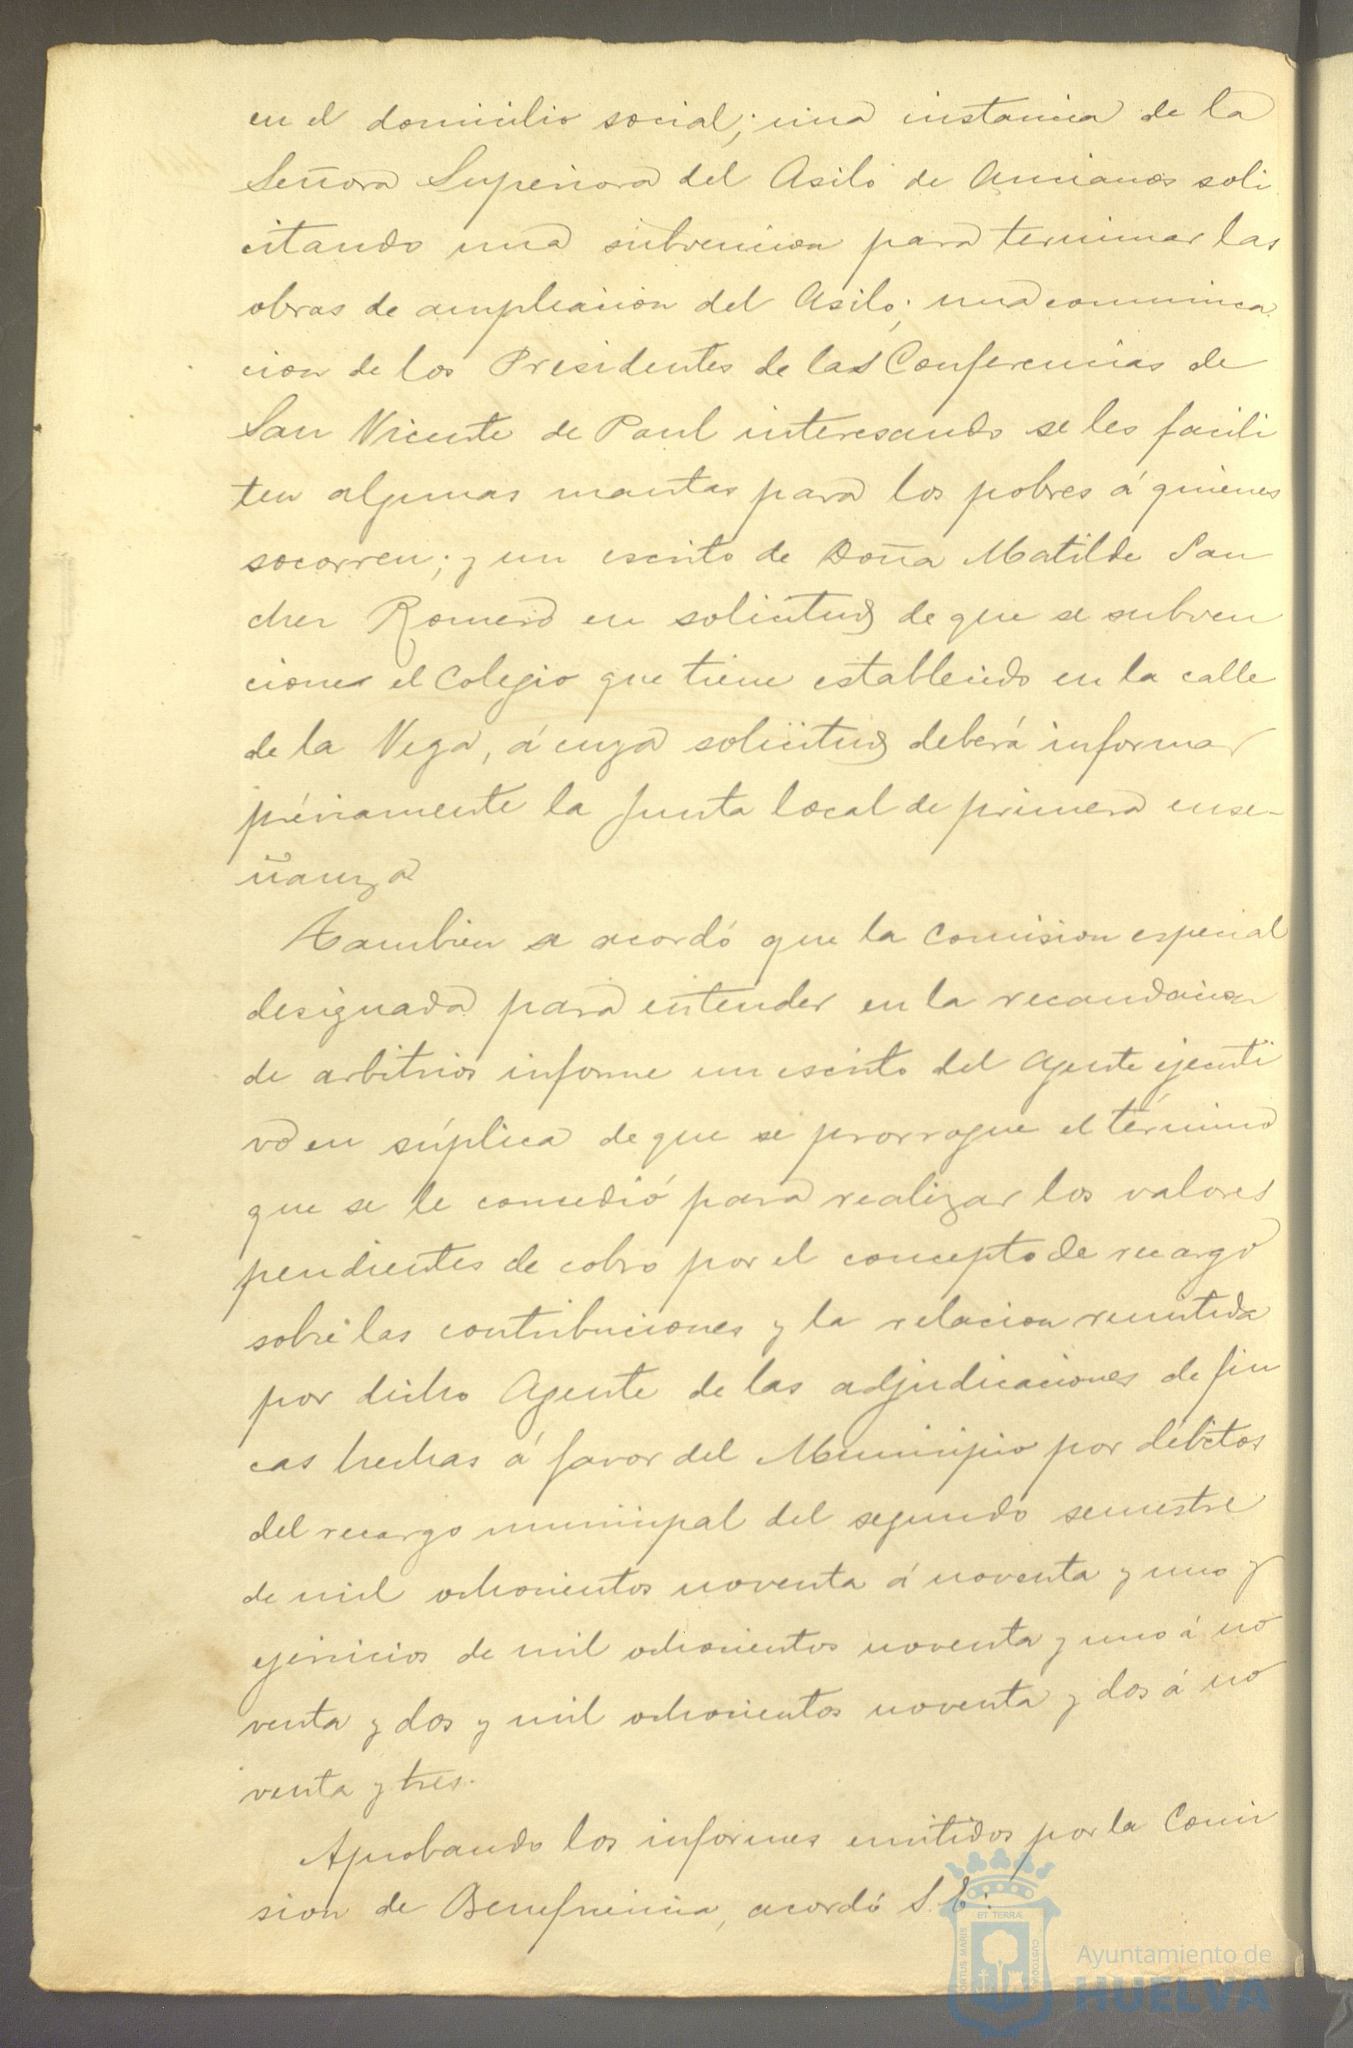 en el domicilio social; una instancia de la
Señora Superiora del Asilo de Ancianos soli
citando una subvencion para terminar las
obras de ampliacion del Asilo; una comunica
cion de los Presidentes de las Conferencias de
San Vicente de Paul interesando se les facili
ten algunas mantas para los pobres á quienes
socorren; y un escrito de Doña Matilde San
chez Romero en solicitud de que se subven
cione el Colegio que tiene establecido en la calle
de la Vega, á cuya solicitud deberá informar
préviamente la Junta local de primera ense-
ñanza
Tambien se acordó que la Comision especial
designada para entender en la recaudacion
de arbitrios informe un escrito del Agente ejecuti
vo en súplica de que se prorrogue el término
que se le concedió para realizar los valores
pendientes de cobro por el concepto de recargo
sobre las contribuciones y la relacion remitida
por dicho Agente de las adjudicaciones de fin
cas hechas á favor del Municipio por débitos
del recargo municipal del segundo semestre
de mil ochocientos noventa á noventa y uno y
ejercicios de mil ochocientos noventa y uno á no
venta y dos y mil ochocientos noventa y dos á no
venta y tres.
Aprobando los informes emitidos por la Comi
sion de Beneficencia, acordó S. E.:
PORTUS MARIS ET TERRAE CUSTODIA
Ayuntamiento de
HUELVA